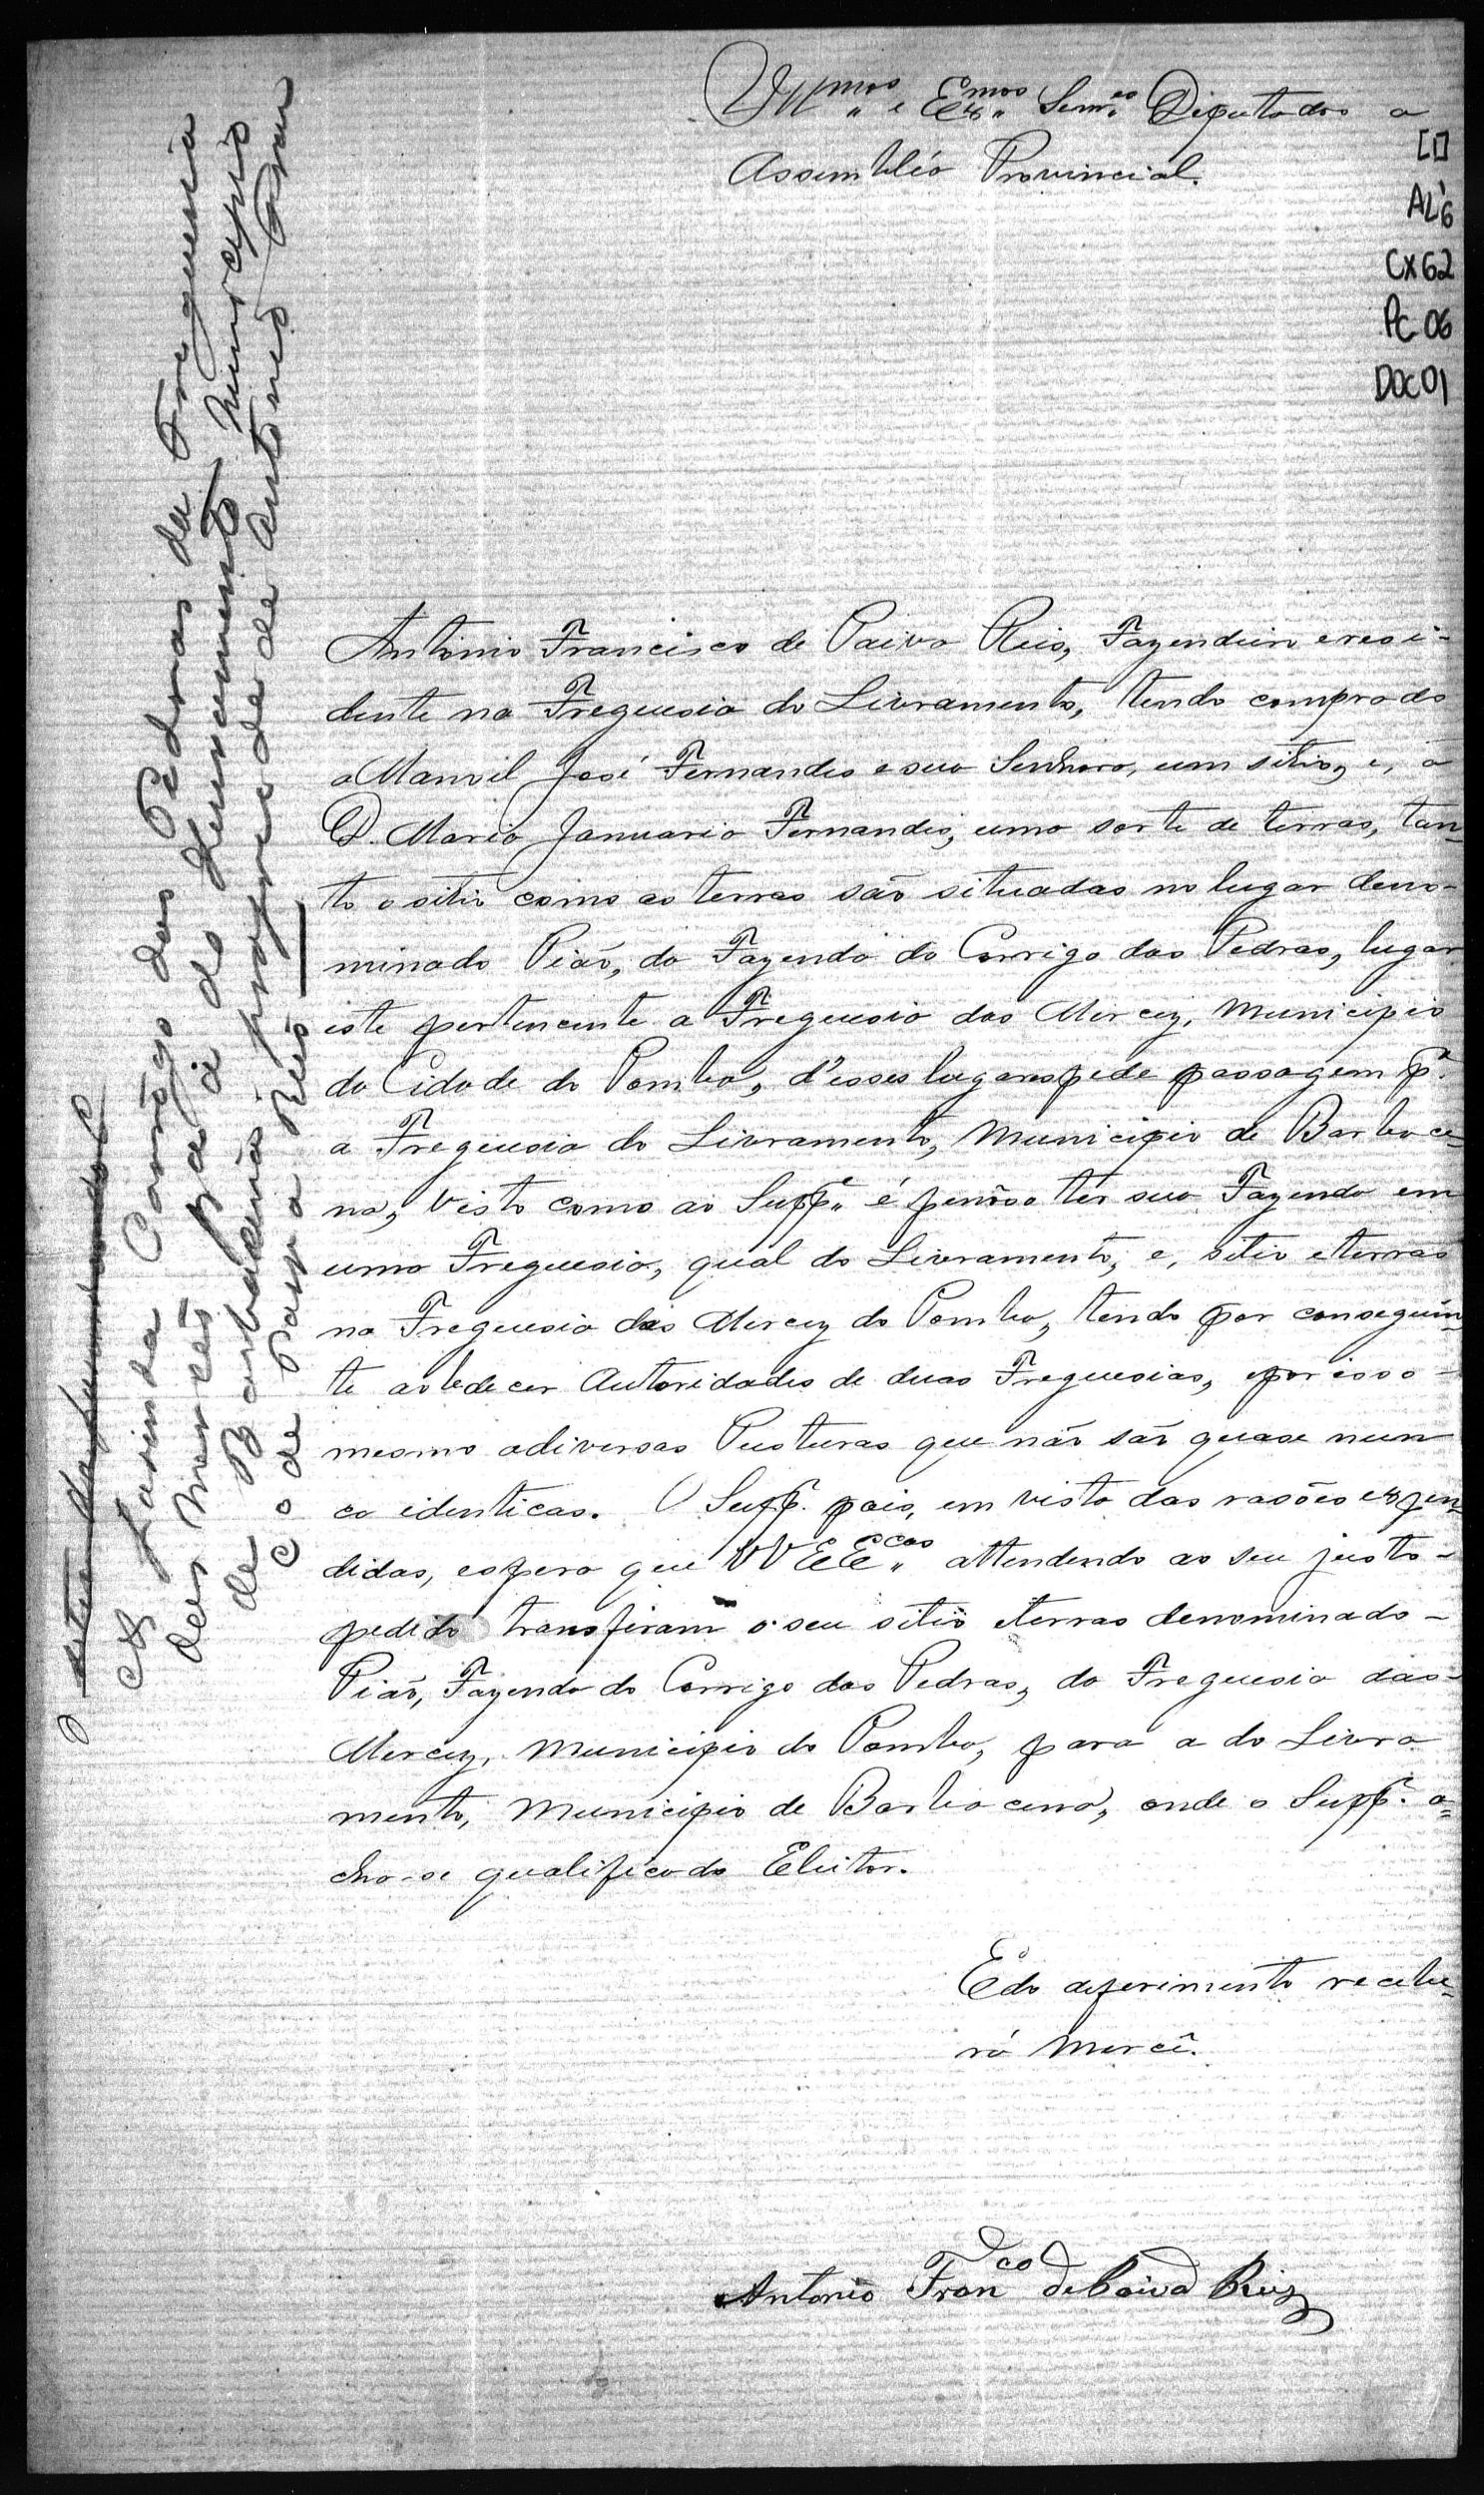 Ill.mos e Ex.mos Senr.es Deputados a
Assembléa Provincial.
[1]
AL6
CX62
PC 06
DOC 01
Antonio Francisco de Paiva Reis, Fazendeiro e resi-
dente na Freguesia do Livramento, tendo comprado
a Manoel José Fernandes e sua Senhora, um sitio, e, a
D. Maria Januaria Fernandes, uma sorte de terras, tan-
to o sitio como as terras são situadas no lugar deno-
minado Pião, da Fazenda do Corrigo das Pedras, lugar
este pertencente a Freguesia das Mercez, Municipio
da Cidade do Pomba, d'esses lugares pede passagem p.ª
a Freguesia do Livramento, Municipio de Barbace-
na, visto como ao Supp.e é penoso tér sua Fazenda em
uma Freguesia, qual do Livramento, e, sitio e terras
na Freguesia das Mercez do Pomba, tendo por conseguin-
te aobedecer Autoridades de duas Freguesias, e por isso -
mesmo a diversas Pusturas que não são quase nun
ca identicas. O Supp.e pois, em vista das rasões expen-
didas, espera que VVEEx.cas attendendo ao seu justo -
pedido transfiram o seu sitio e terras denominado -
Pião, Fazenda do Corrigo das Pedras, da Freguesia das -
Mercez, Municipio do Pomba, para a do Livra
mento, Municipio de Barbacena, onde o Supp.e a-
cha-se qualificado Eleitor.
E do deferimento recebe-
rá Mercê.
Antonio Fran.co de Paiva Reis
O sitio
A Fazenda Corrêgo das Pedras da Freguesia
das Mercês para a do municipio
de Barbacena propriedade de Antonio Fran
co de Paiva Reis